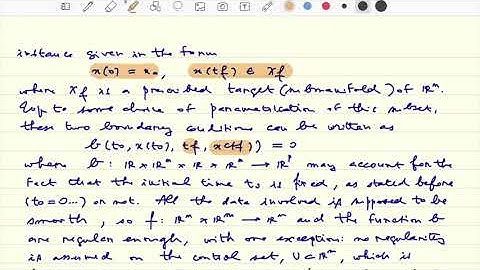 instance given in the form
x(0) = x₀, x(tf) ∈ Xf
where Xf is a prescribed target (submanifold) of ℝⁿ.
Up to some choice of parametrisation of this subset,
these two boundary conditions can be written as
b(t₀, x(t₀), tf, x(tf)) = 0
where b : ℝ × ℝⁿ × ℝ × ℝⁿ → ℝᵖ may account for the
fact that the initial time t₀ is fixed, as stated before
(t₀ = 0...) or not. All the data involved is supposed to be
smooth, so f : ℝⁿ × ℝᵐ → ℝⁿ and the function b
are regular enough, with one exception: no regularity
is assumed on the control set, U ⊂ ℝᵐ, which is